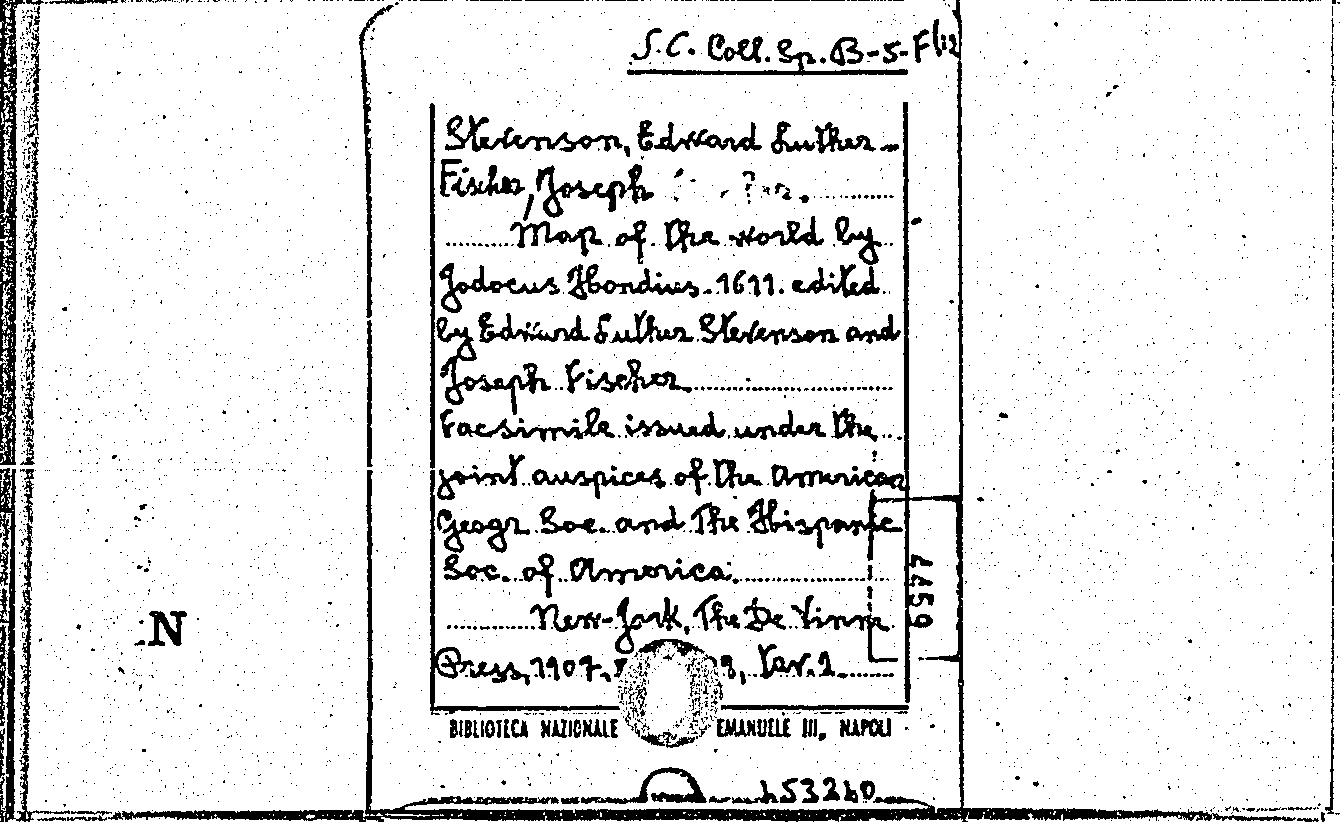 S.C. Coll. Sp. B-5-F
Stevenson, Edward Luther
Fischer, Joseph
Map of the world by
Jodocus Hondius. 1611. edited
by Edward Luther Stevenson and
Joseph Fischer
Facsimile issued under the
joint auspices of the American
Geogr. Soc. and the Hispanic
Soc. of America.
New-Jork, The De Vinne
Press, 1907. tav. 1.
BIBLIOTECA NAZIONALE EMANUELE III, NAPOLI
N